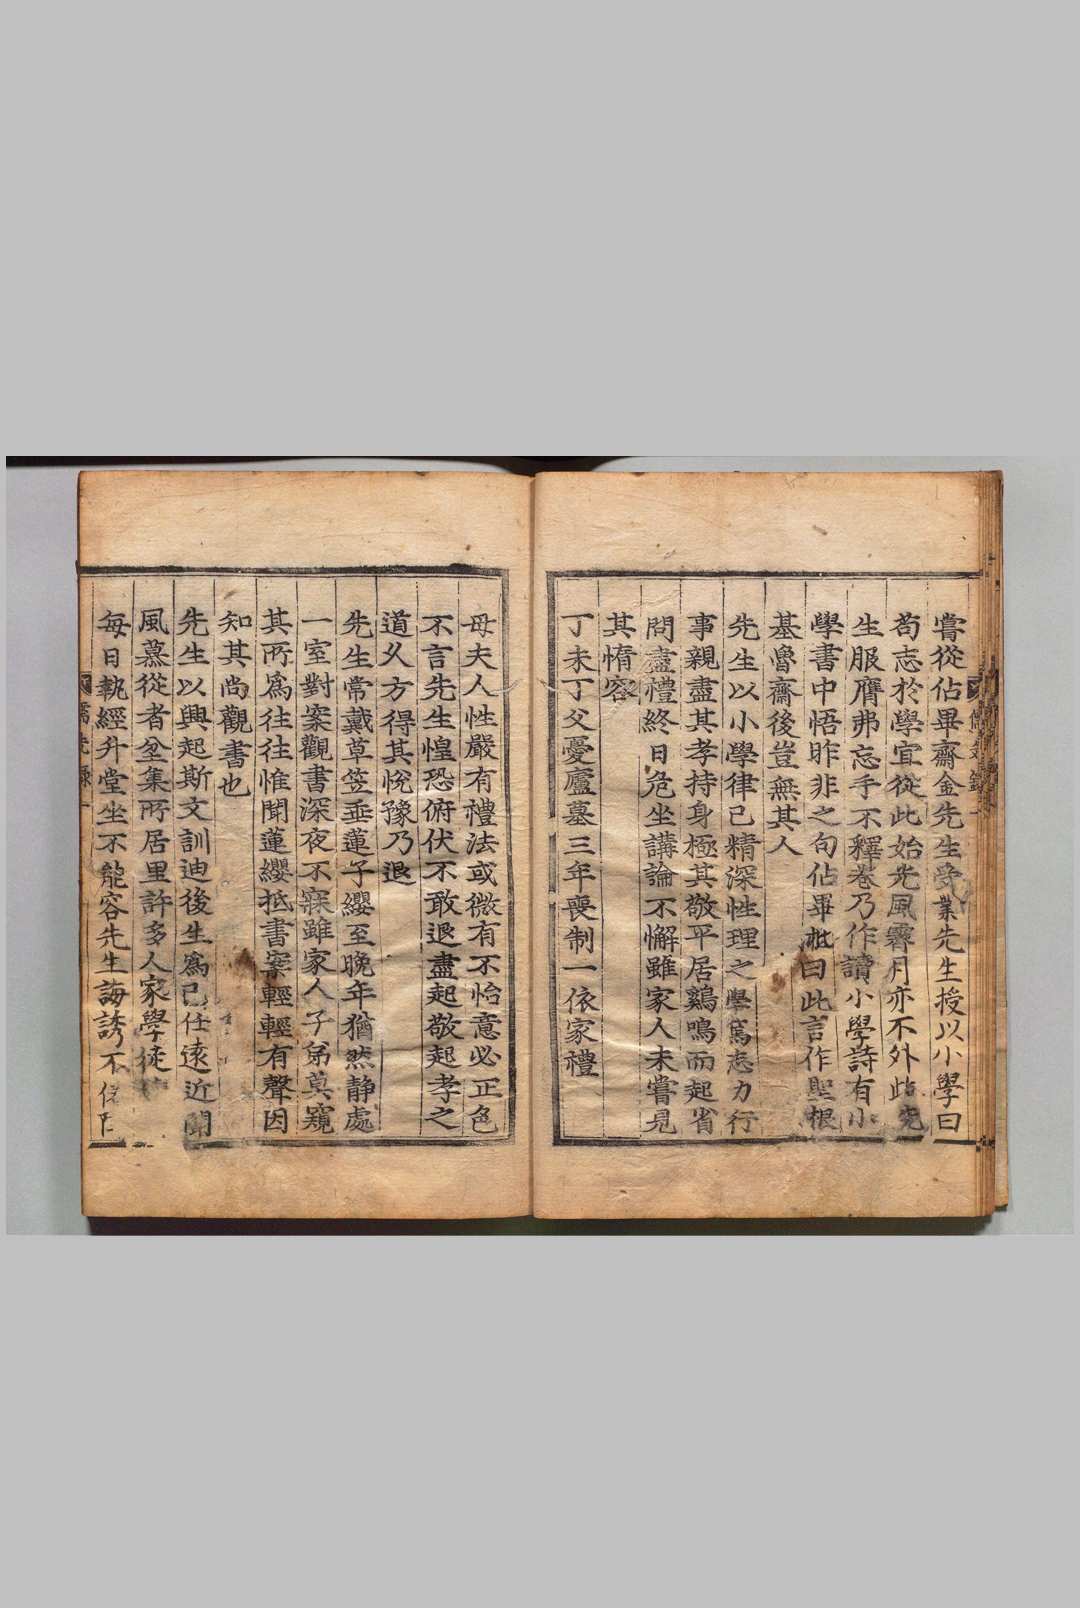 嘗從佔畢齋金先生受業先生授以小學曰
苟志於學宜從此始光風霽月亦不外此
生服膺弗忘手不釋卷乃作讀小學詩有小
學書中悟昨非之句佔畢批曰此言作聖根
基魯齋後豈無其人
先生以小學律己精深性理之學篤志力行
事親盡其孝持身極其敬平居鷄鳴而起省
問盡禮終日危坐講論不懈雖家人未嘗見
其惰容
丁未丁父憂廬墓三年喪制一依家禮
母夫人性嚴有禮法或微有不怡意必正色
不言先生惶恐俯伏不敢退盡起敬起孝之
道久方得其悅豫乃退
先生常戴草笠垂蓮子纓至晩年猶然静處
一室對案觀書深夜不寐雖家人子弟莫窺
其所爲往往惟聞蓮纓抵書案輕輕有聲因
知其尚觀書也
先生以興起斯文訓迪後生爲己任遠近聞
風慕從者坌集所居里許多人家學徒
每日執經升堂坐不能容先生誨誘不
儒先錄一